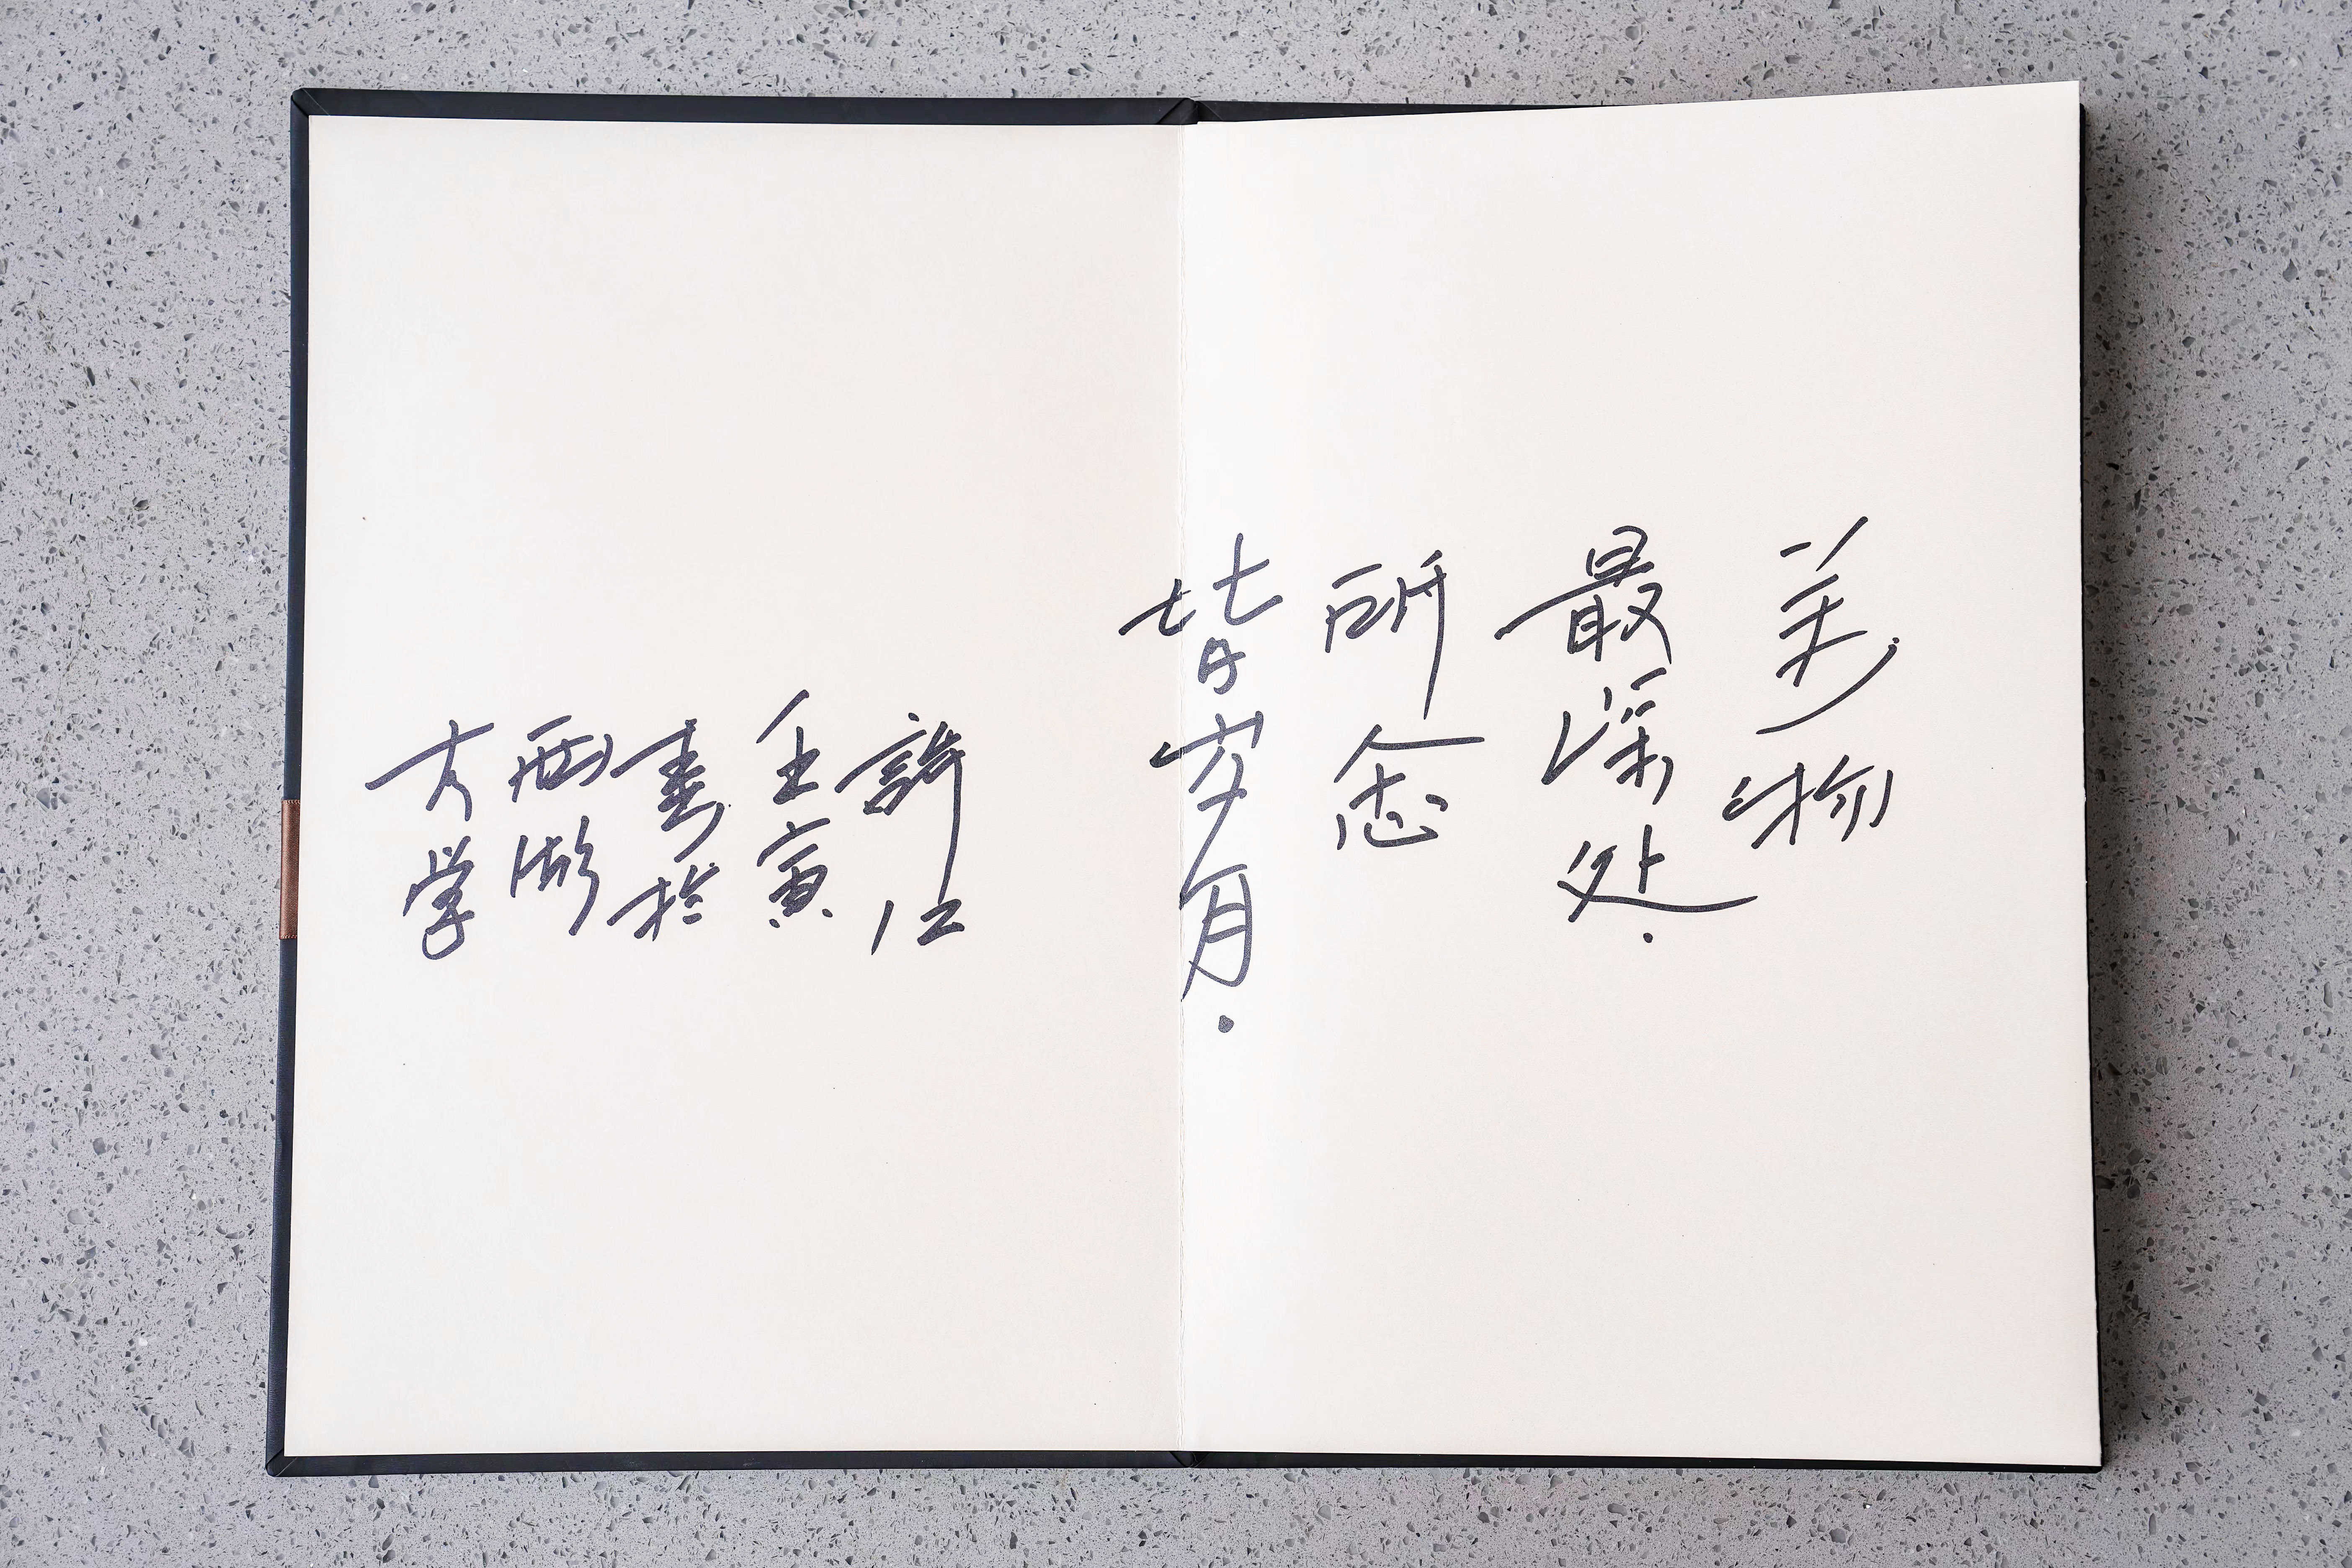 美物
最深处.
所念
皆岁月.
許江
壬寅
春於
西湖
大学